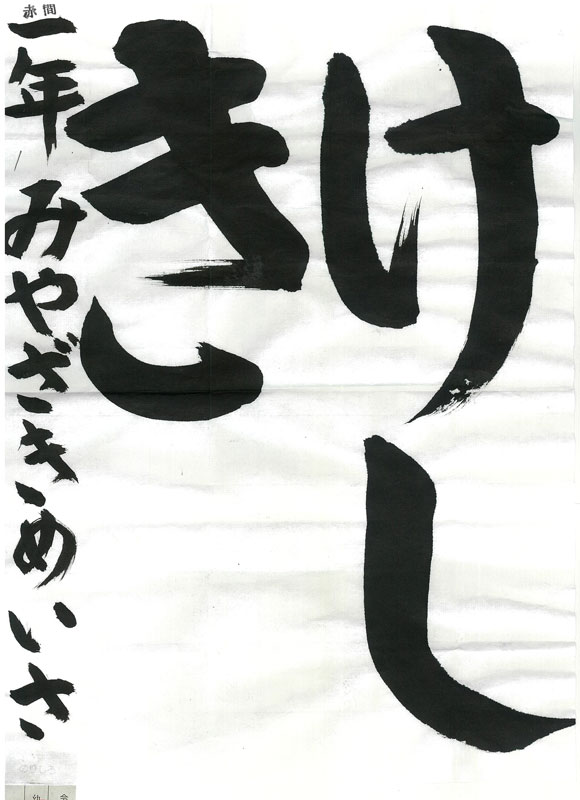 けし
き
一年 みやざきめいさ
赤間